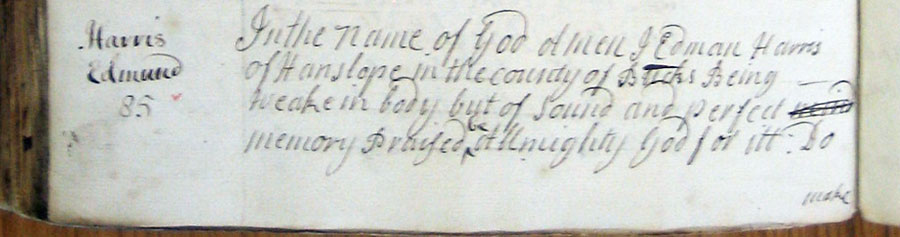 Harris
Edmund
85
In the Name of God Amen I Edman Harris
of Hanslope in the county of Bucks Being
Weake in body but of Sound and perfect
memory Praised be Allmighty God for itt : Do
make